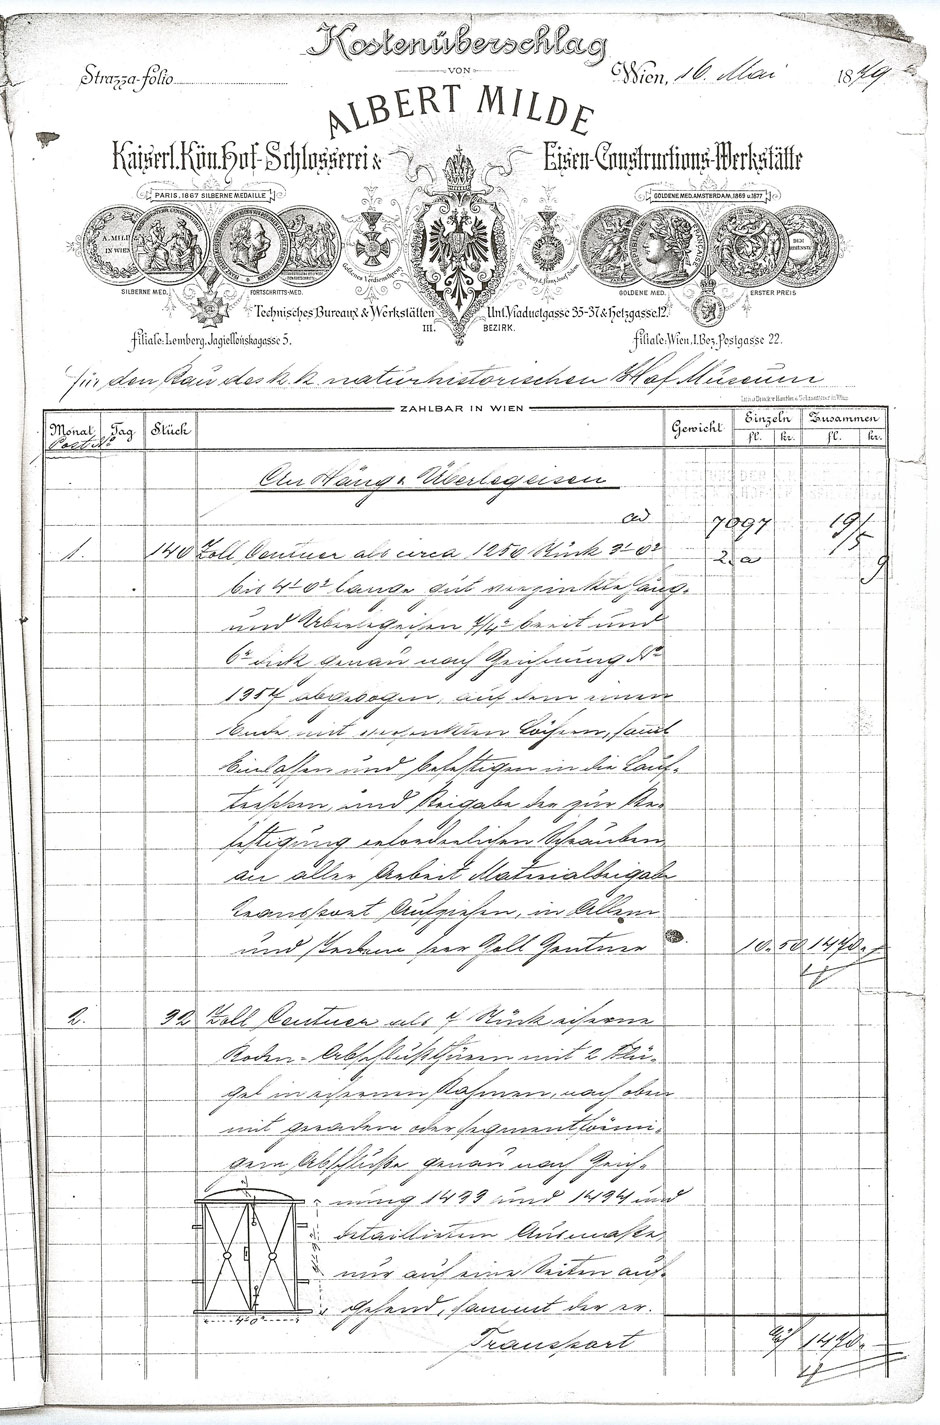 Kostenüberschlag
VON
Strazza-folio
Wien, 16. Mai 1879
ALBERT MILDE
Kaiserl. Kön. Hof-Schlosserei & Eisen-Constructions-Werkstätte
PARIS. 1867 SILBERNE MEDAILLE
GOLDENE MED. AMSTERDAM. 1869 u. 1877
A. MILDE
IN WIEN
SILBERNE MED.
FORTSCHRITTS-MED.
GOLDENE MED.
ERSTER PREIS
Technisches Bureaux & Werkstätten Unt. Viaductgasse 35-37 & Hetzgasse 12.
III. BEZIRK.
Filiale: Lemberg, Jagiellońskagasse 5.
Filiale: Wien, I. Bez. Postgasse 22.
für den Bau des k. k. naturhistorischen Hof Museum
ZAHLBAR IN WIEN
Monat Tag Stück Gewicht Einzeln Zusammen
Post No fl. kr. fl. kr.
An Häng & Überlegeisen
ad 7097 19/5
2. a 9
1. 140 Zoll Centner als circa 1250 Stück 3' 0"
bis 4' 0" lange gut verzinkte Häng-
und Überlegeisen 7/4" breit und
6" dick genau nach Zeichnung No
1957 abgebogen, auf dem einen
Ende mit versenkten Löchern, samt
Einlassen und befestigen in die Lauf-
treppen, und Beigabe der zur Be-
festigung erforderlichen Schrauben,
an aller Arbeit Materialbeigabe
Transport Aufziehen, in Allem
und Jedem per Zoll Centner 10.50 1470.-
2. 32 Zoll Centner als 7 Stück eiserne
Boden-Abschlußthüren mit 2 Flü-
gel in eisernen Rahmen, nach oben
mit geradem oder segmentförmi-
gem Abschluße genau nach Zeich-
nung 1493 und 1494 und
detaillirtem Ausmaße
nur auf eine Seiten auf-
gehend, sammt der er-
4' 0"
Transport 1470.-